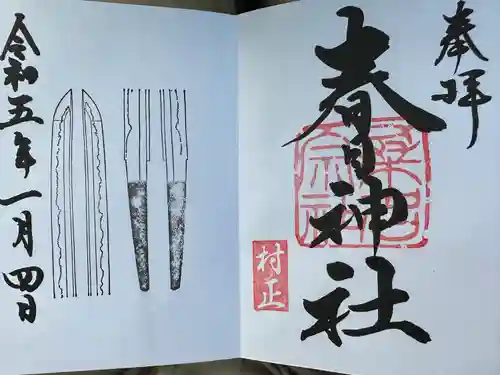 奉拝
春日神社
村正
令和五年一月四日